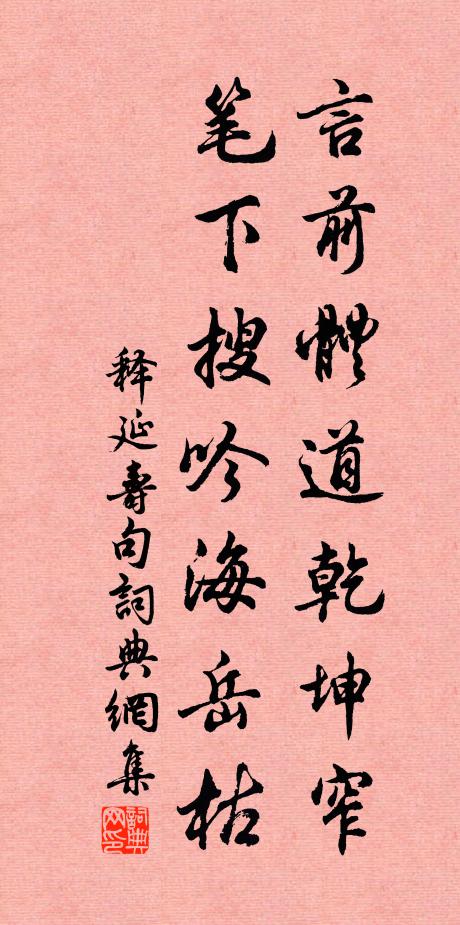 言前體道乾坤窄
笔下搜吟海岳枯
释延壽句詞典網集
詞典网印